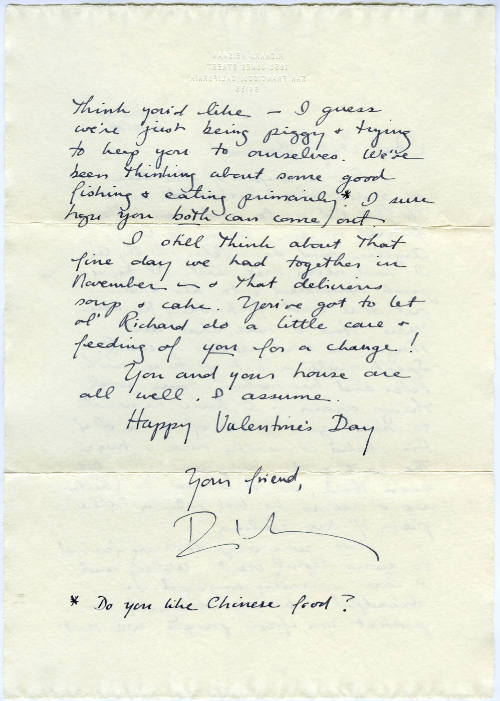 Think you'd like – I guess
we're just being piggy & trying
to keep you to ourselves. We've
been thinking about some good
fishing & eating primarily*. I sure
hope you both can come out.
I still think about that
fine day we had together in
November – & that delicious
soup & cake. You've got to let
ol' Richard do a little care &
feeding of you for a change!
You and your house are
all well, I assume.
Happy Valentine's Day
Your friend,
* Do you like Chinese food?